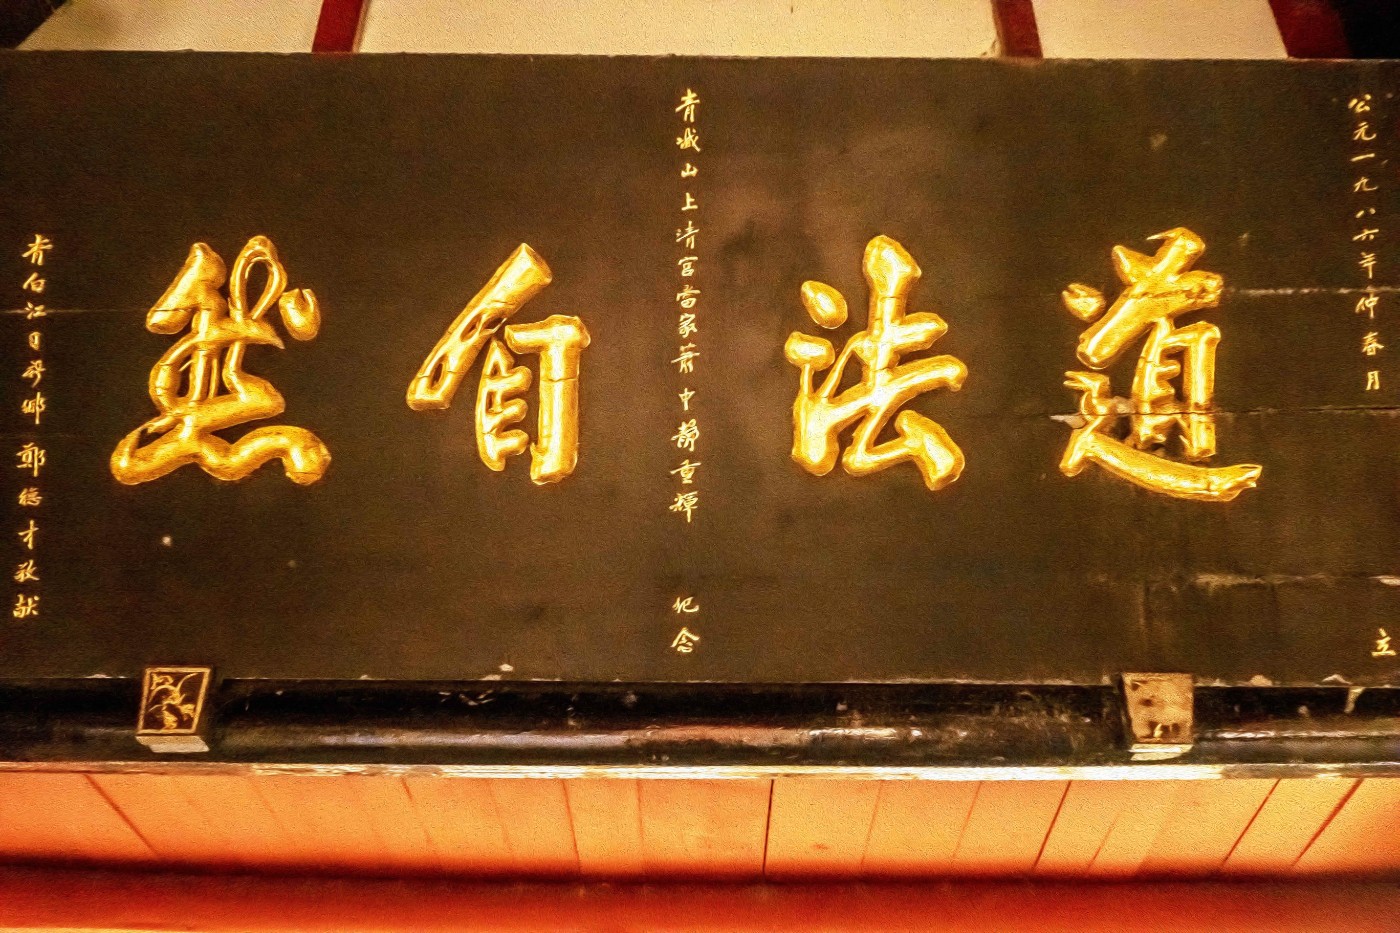 公元一九八六年仲春月 立
道法自然
青城山上清宮當家蕭中靜重輝 紀念
青白江日新鄉鄭德才敬献